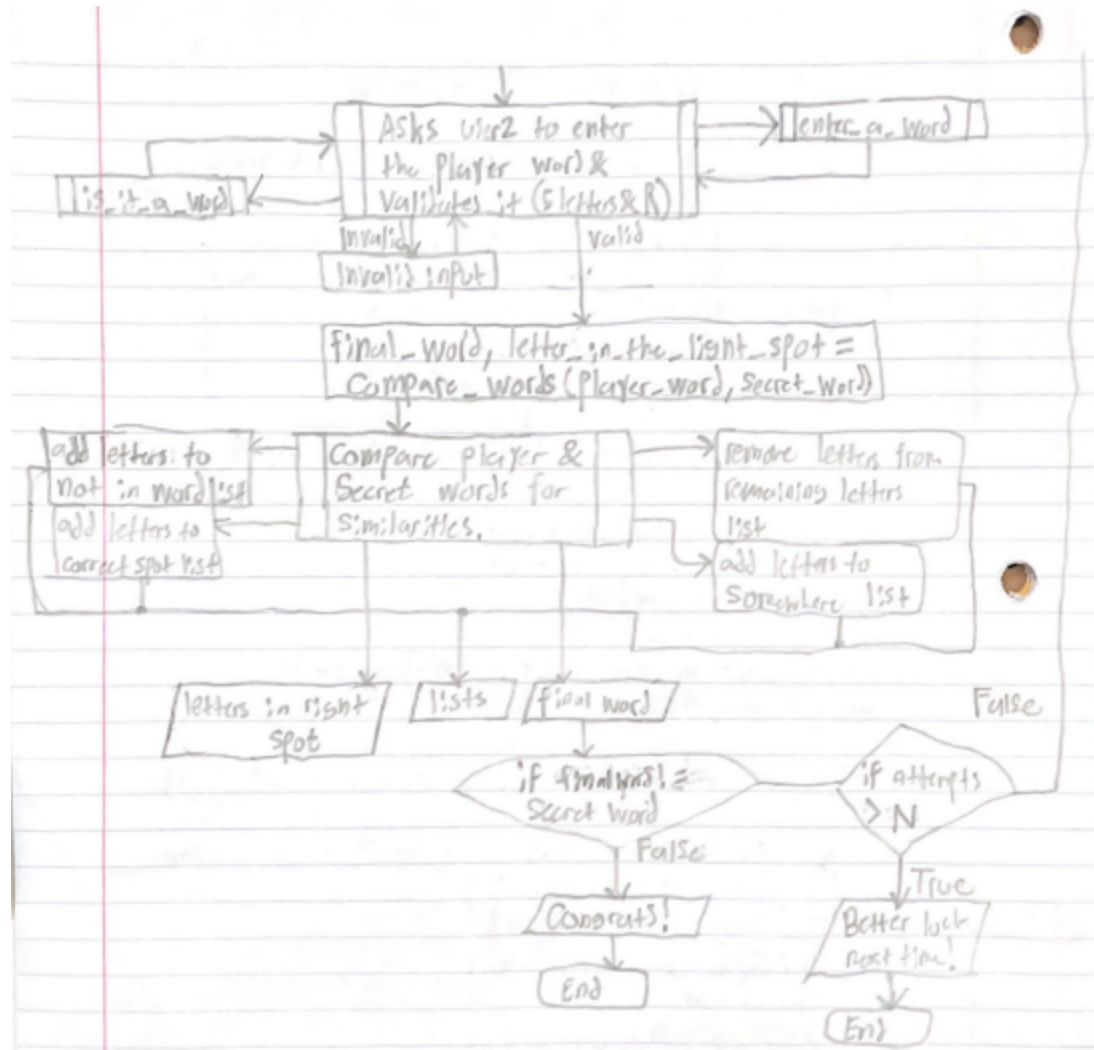 Asks user2 to enter
the player word &
validates it (5 letters & R)
enter_a_word
is_it_a_word
Invalid
valid
Invalid input
final_word, letter_in_the_right_spot =
compare_words(player_word, secret_word)
add letters to
not in word list
add letters to
correct spot list
Compare player &
Secret words for
similarities.
remove letters from
remaining letters
list
add letters to
Somewhere list
letters in right
spot
lists
final word
False
if final word! =
Secret word
if attempts
> N
False
True
Congrats!
Better luck
next time!
End
End